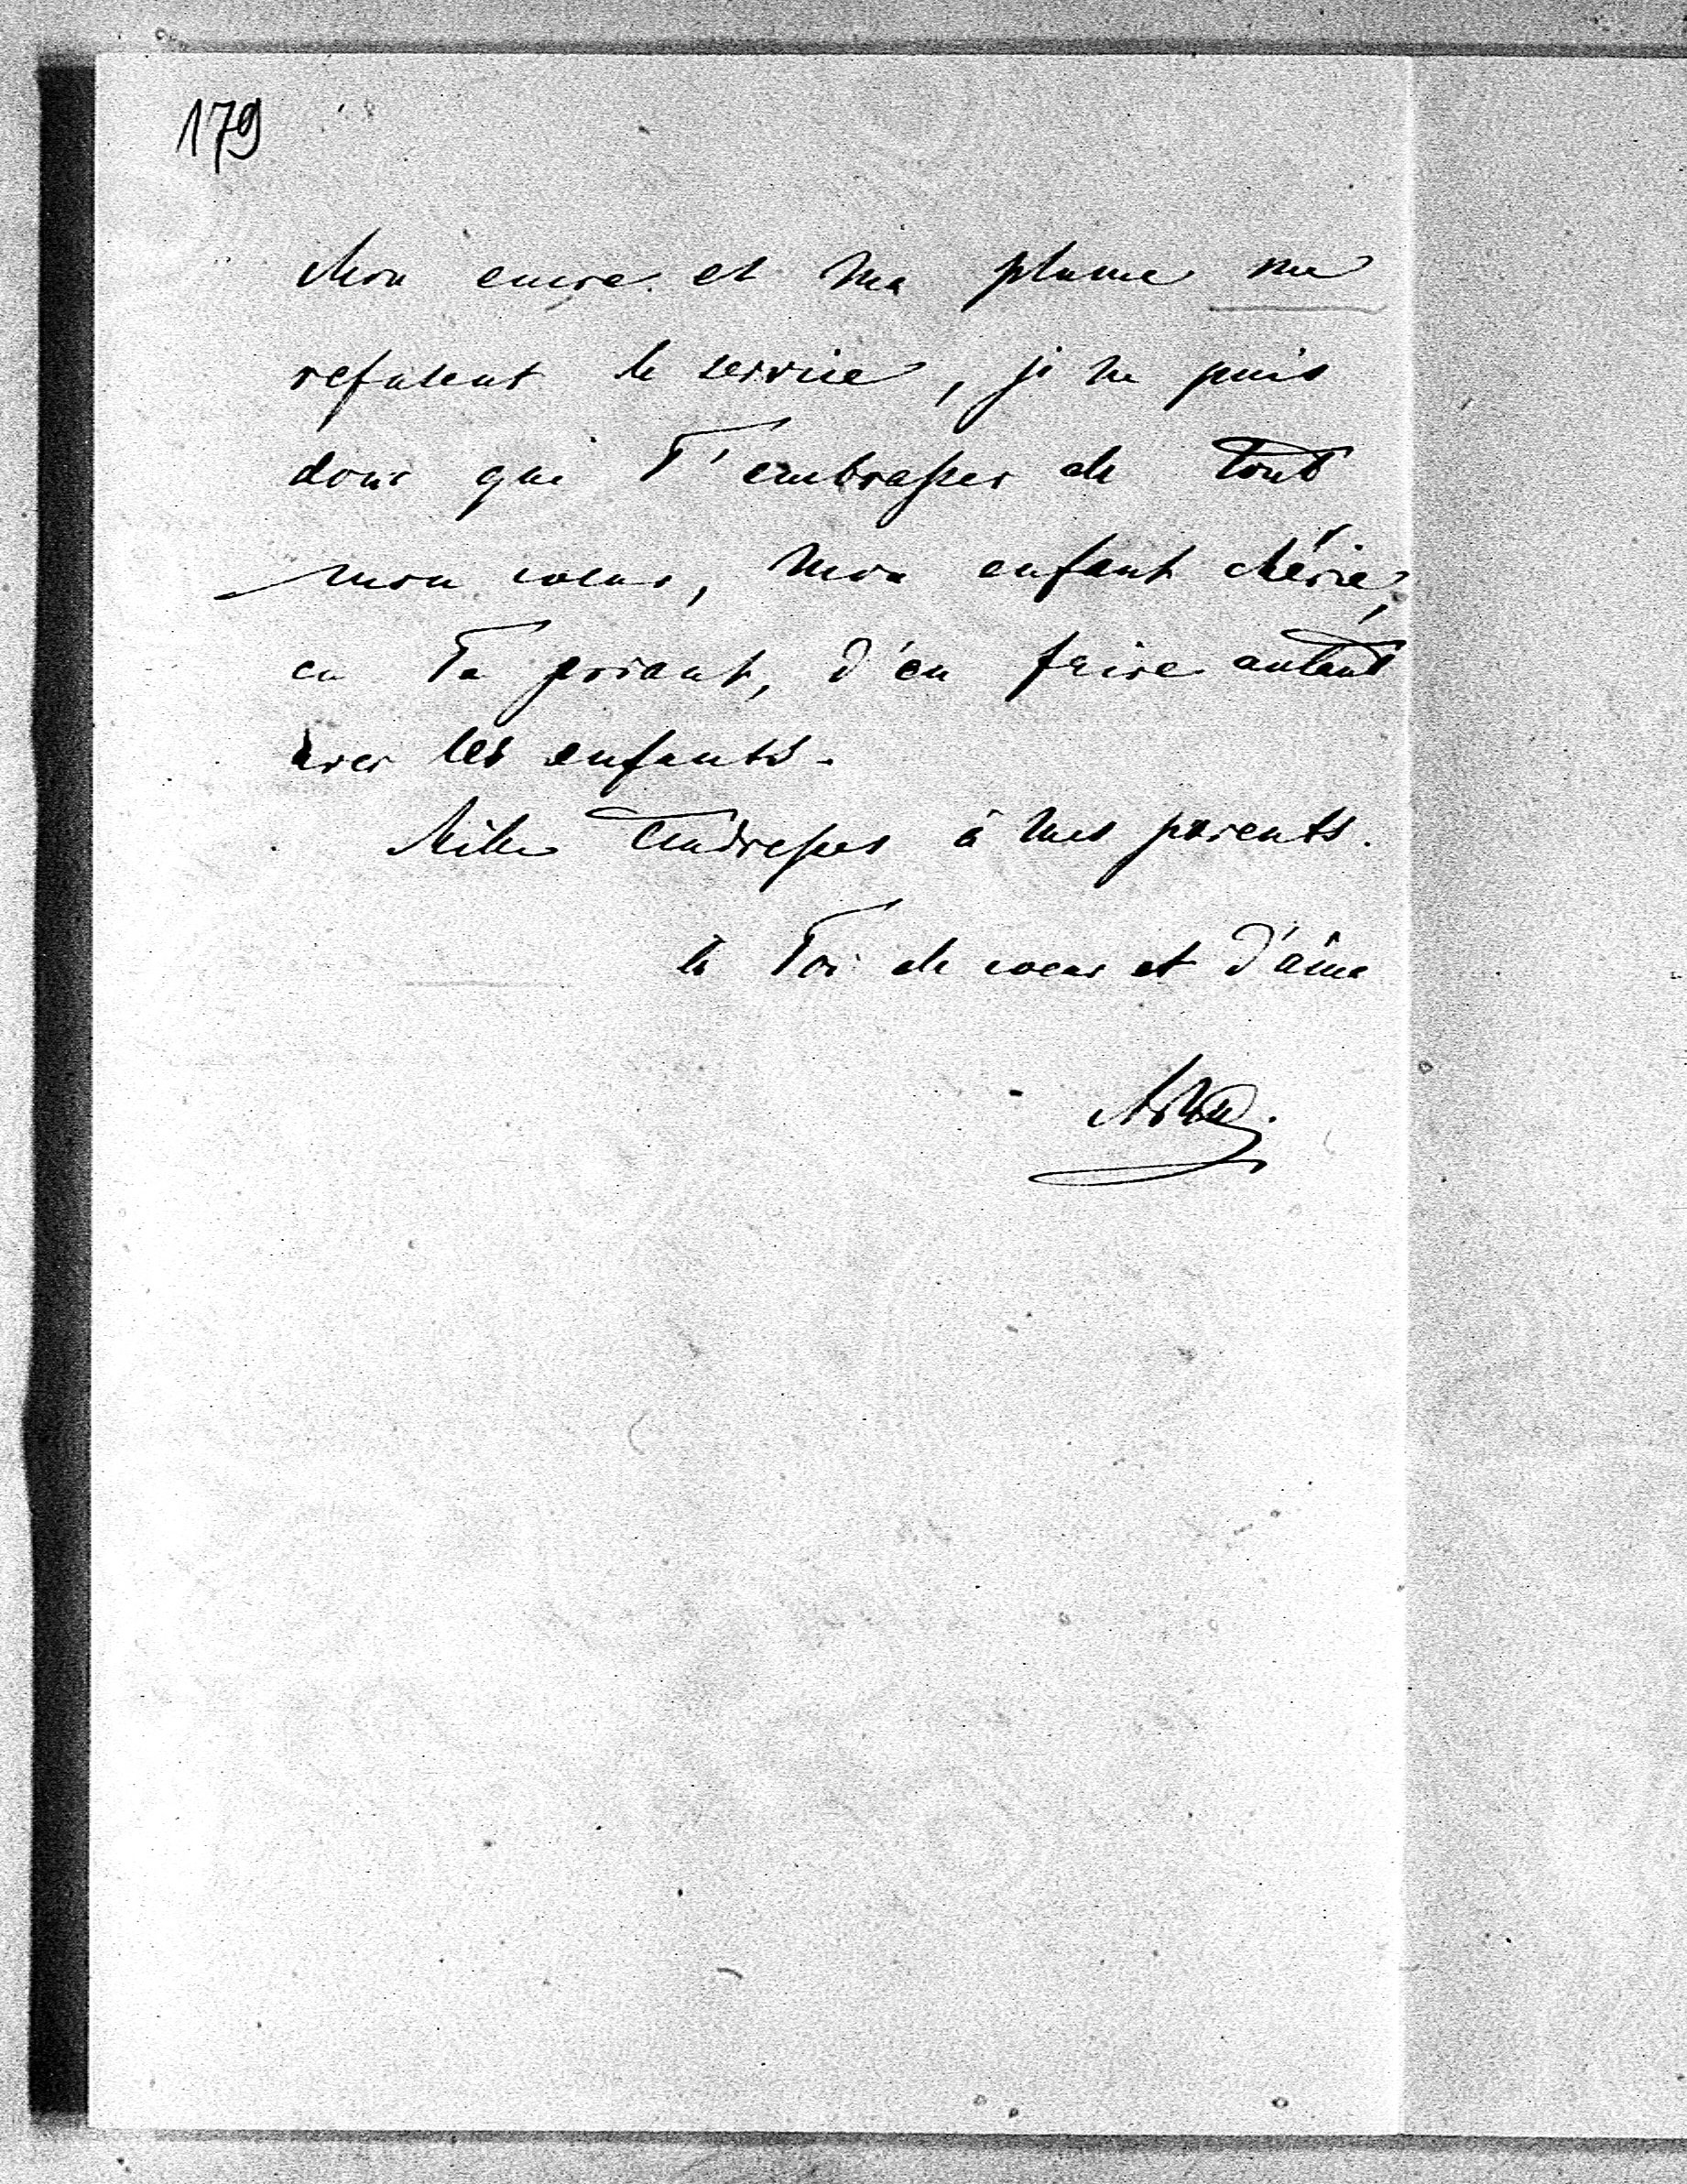 179
Mon encre et ma plume me
refusent le service, je ne puis
donc que T'embrasser de tout
mon coeur, mon enfant chérie,
en Te priant, d'en faire autant
avec les enfants.
Mille tendresses à mes parents.
à Toi de coeur et d'âme